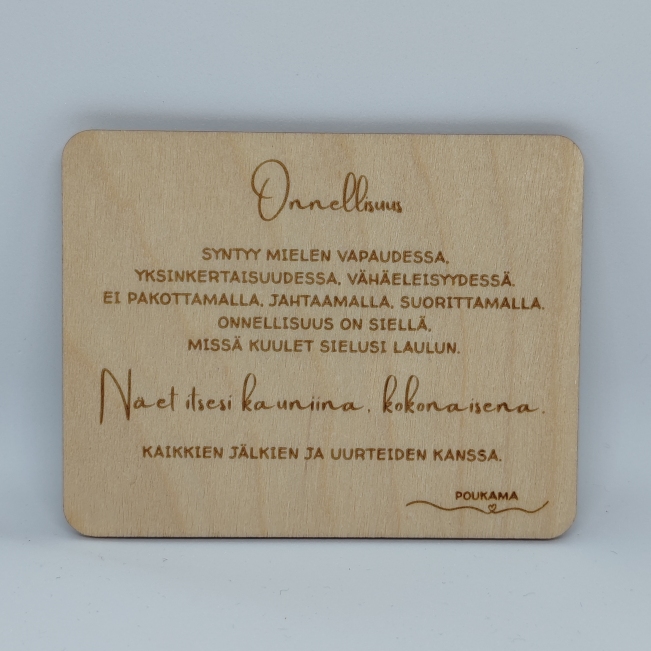 Onnellisuus
SYNTYY MIELEN VAPAUDESSA,
YKSINKERTAISUUDESSA, VÄHÄELEISYYDESSÄ.
EI PAKOTTAMALLA, JAHTAAMALLA, SUORITTAMALLA.
ONNELLISUUS ON SIELLÄ,
MISSÄ KUULET SIELUSI LAULUN.
Näet itsesi kauniina, kokonaisena.
KAIKKIEN JÄLKIEN JA UURTEIDEN KANSSA.
POUKAMA